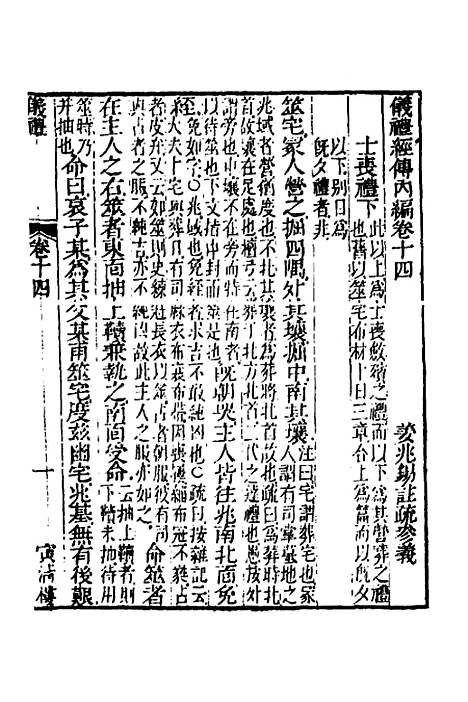 儀禮經傳內編卷十四
姜兆錫註疏參義
士喪禮下
此以上為士喪斂殯之禮而以下為其營葬之禮
也舊以筮宅布材卜日三章台上為篇而以既夕
以下別目為
既夕禮者非
筮宅冢人營之掘四隅外其壤掘中南其壤
注曰宅謂葬宅也冢
人謂有司掌墓地之
兆域者營猶度也北其壤者為葬將北首故也疏曰為葬時北
首故壤在足處也檀弓云葬于北方北首三代之達禮也愚按外
旁為四也中壤不在旁而特在南者
既朝哭主人皆往兆南北面免
以待筮也下文指中封而筮是也
絰
免如字○兆域也免絰者求吉不敢純凶也○疏曰按雜記云
大夫卜宅與葬日有司麻衣布衰布帶因喪屨緇布冠不蕤占
者皮弁又云如筮則史練冠長衣以筮占者朝服彼有司
與占者之服不純吉亦不純凶故此主人之服
命筮者
在主人之右筮者東面抽上韇兼執之南面受命
云抽上韇者則
下韇未抽待用
筮時乃
并抽也
命曰哀子某為其父某甫筮宅度茲幽宅兆基無有後艱
儀禮
卷十四
一
寅清樓